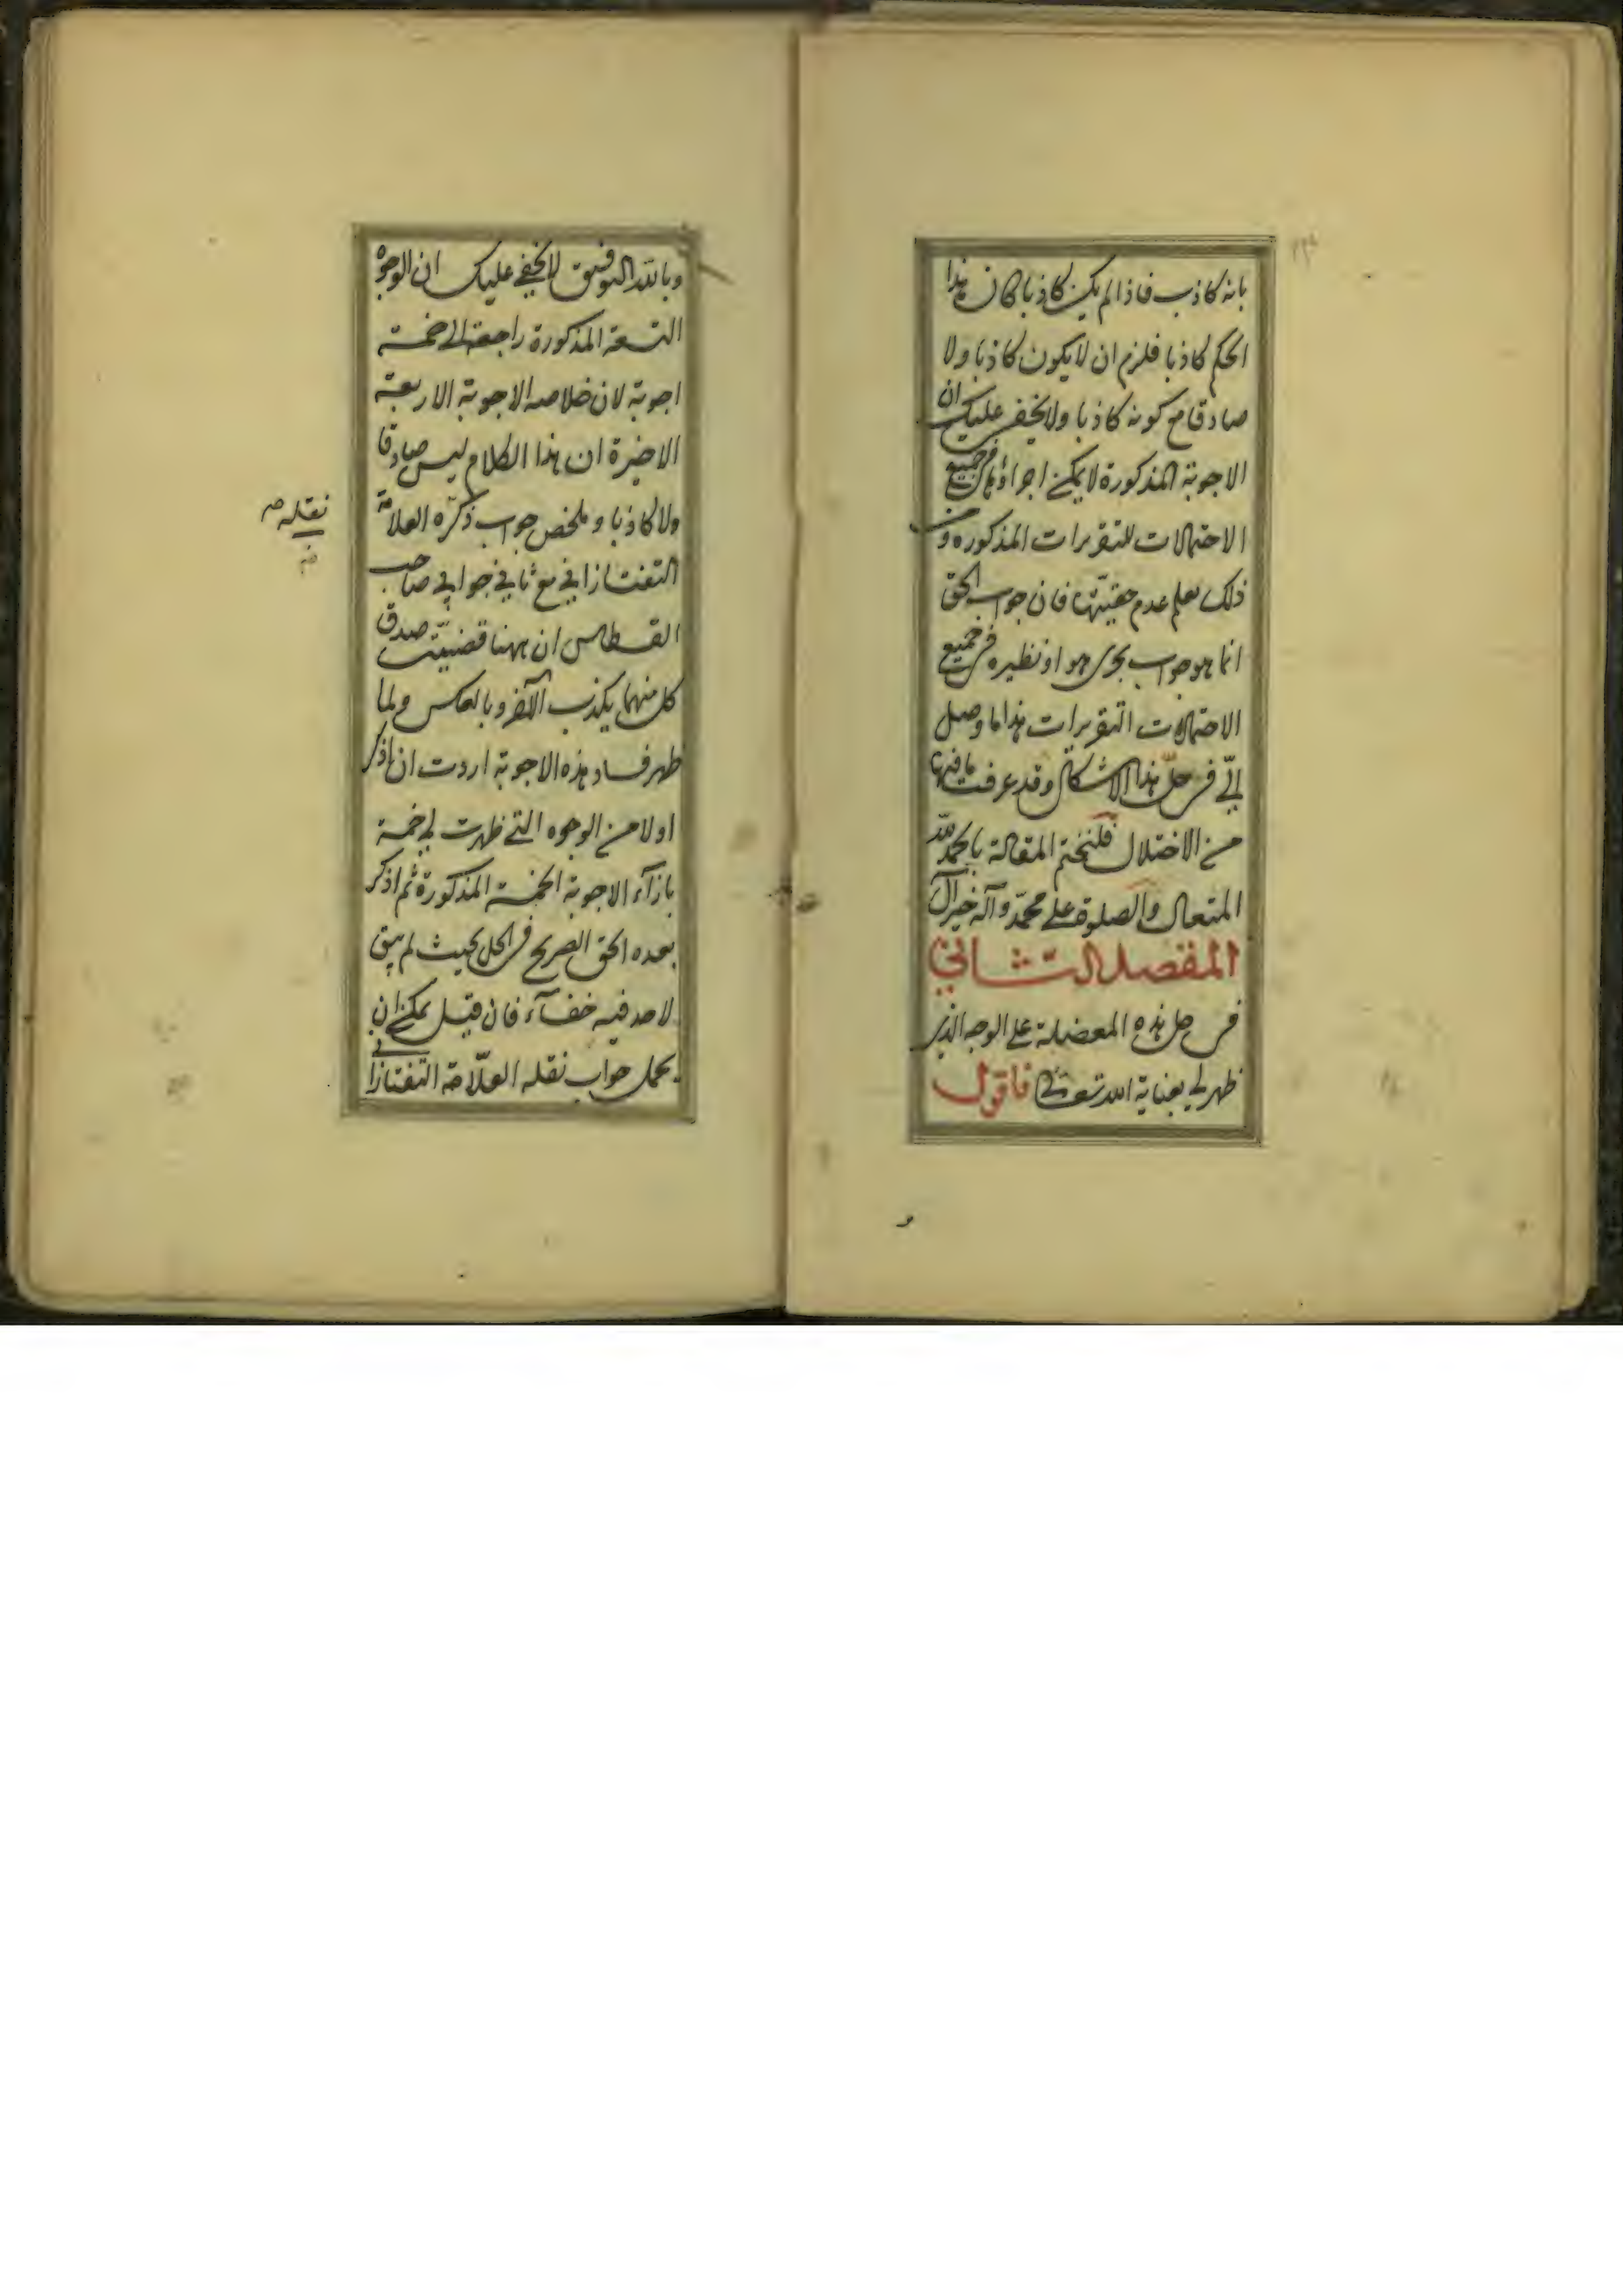 بانه كاذب فاذا لم يكن كاذبا كان هذا
الحكم كاذبا فلزم ان لا يكون كاذبا ولا
صادقا مع كونه كاذبا ولا يخفى عليك ان
الاجوبة المذكورة لا يمكن اجراؤها فى جميع
الاحتمالات للتقريرات المذكوره ومن
ذلك يعلم عدم حقيّتها فان جواب الحق
انما هو جواب يجرى هو او نظيره فى جميع
الاحتمالات التقريرات هذا ما وصل
الىّ فى حلّ هذا الاشكال وقد عرفت ما فيها
من الاختلال فلنختم المقالة بالحمد لله
المتعال والصلوة على محمّد وآله خير آل
المفصل الثانى
فى حل هذه المعضلة على الوجه الذى
ظهر لى بعناية الله تعالى فاقول
وبالله التوفيق لا يخفى عليك ان الوجوه
التسعة المذكورة راجعة الى خمسة
اجوبة لان خلاصه الاجوبة الاربعة
الاخيرة ان هذا الكلام ليس صادقا
ولا كاذبا وملخص جواب ذكره العلامة
التفتازانى مع ثانى جوابى صاحب
القسطاس ان ههنا قضيتين صدق
كل منهما يكذب الآخر وبالعكس ولما
ظهر فساد هذه الاجوبة اردت ان اذكر
اولا من الوجوه التى ظهرت لى خمسة
بازآء الاجوبة الخمسة المذكورة ثم اذكر
بعده الحق الصريح فى الحل بحيث لم يبق
لاحد فيه خفآء فان قيل يمكن ان
يحمل جواب نقله العلّامة التفتازانى
نقله